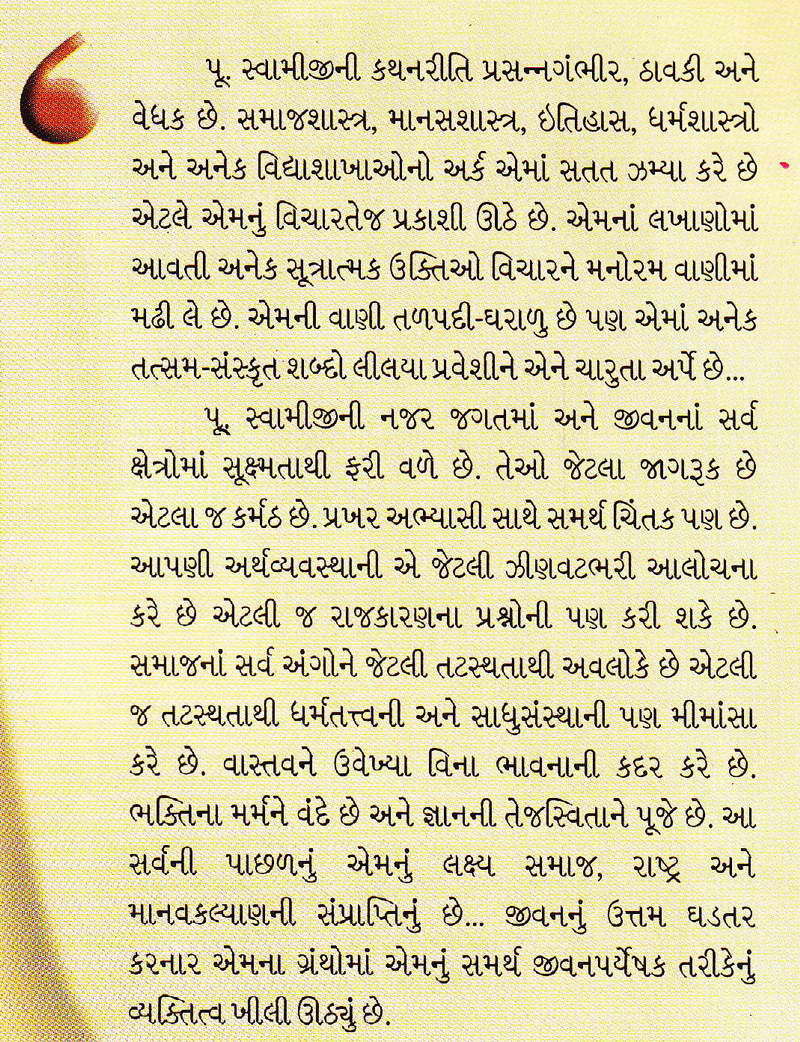 પૂ. સ્વામીજીની કથનરીતિ પ્રસન્નગંભીર, ઠાવકી અને
વેધક છે. સમાજશાસ્ત્ર, માનસશાસ્ત્ર, ઇતિહાસ, ધર્મશાસ્ત્રો
અને અનેક વિદ્યાશાખાઓનો અર્ક એમાં સતત ઝમ્યા કરે છે
એટલે એમનું વિચારતેજ પ્રકાશી ઊઠે છે. એમનાં લખાણોમાં
આવતી અનેક સૂત્રાત્મક ઉક્તિઓ વિચારને મનોરમ વાણીમાં
મઢી લે છે. એમની વાણી તળપદી-ઘરાળુ છે પણ એમાં અનેક
તત્સમ-સંસ્કૃત શબ્દો લીલયા પ્રવેશીને એને ચારુતા અર્પે છે...
પૂ. સ્વામીજીની નજર જગતમાં અને જીવનનાં સર્વ
ક્ષેત્રોમાં સૂક્ષ્મતાથી ફરી વળે છે. તેઓ જેટલા જાગરૂક છે
એટલા જ કર્મઠ છે. પ્રખર અભ્યાસી સાથે સમર્થ ચિંતક પણ છે.
આપણી અર્થવ્યવસ્થાની એ જેટલી ઝીણવટભરી આલોચના
કરે છે એટલી જ રાજકારણના પ્રશ્નોની પણ કરી શકે છે.
સમાજનાં સર્વ અંગોને જેટલી તટસ્થતાથી અવલોકે છે એટલી
જ તટસ્થતાથી ધર્મતત્ત્વની અને સાધુસંસ્થાની પણ મીમાંસા
કરે છે. વાસ્તવને ઉવેખ્યા વિના ભાવનાની કદર કરે છે.
ભક્તિના મર્મને વંદે છે અને જ્ઞાનની તેજસ્વિતાને પૂજે છે. આ
સર્વની પાછળનું એમનું લક્ષ્ય સમાજ, રાષ્ટ્ર અને
માનવકલ્યાણની સંપ્રાપ્તિનું છે... જીવનનું ઉત્તમ ઘડતર
કરનાર એમના ગ્રંથોમાં એમનું સમર્થ જીવનપર્યેષક તરીકેનું
વ્યક્તિત્વ ખીલી ઊઠ્યું છે.